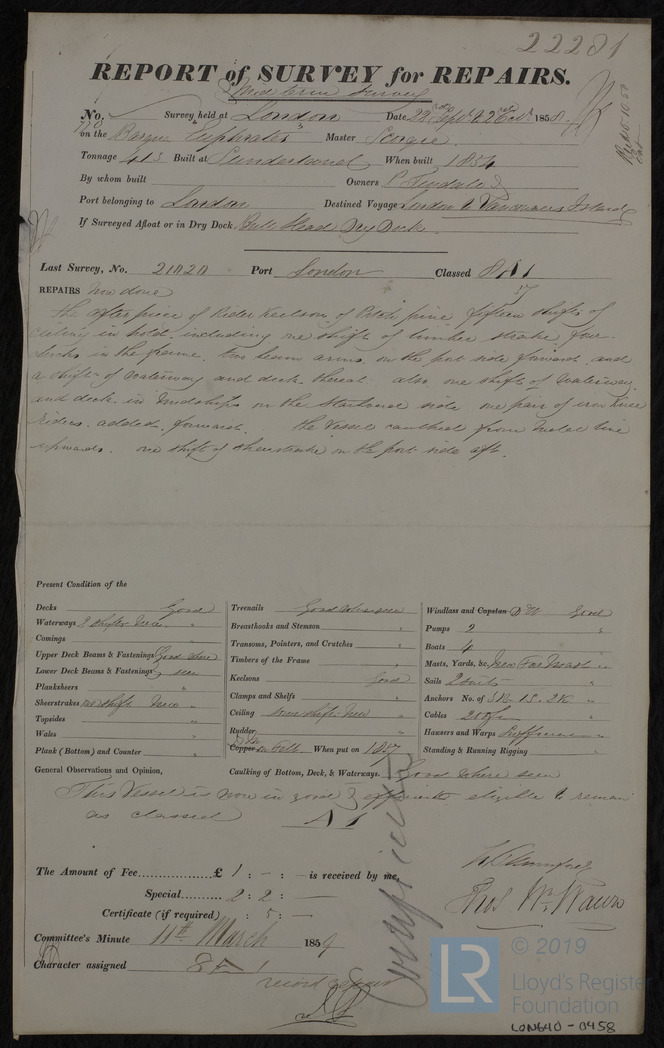 22281
REPORT of SURVEY for REPAIRS.
No. Survey held at London Date 22 Sept & 2 Oct 1858
on the Barque Euphrates Master
Tonnage 413 Built at Sunderland When built 1834
By whom built Owners P Tindale
Port belonging to London Destined Voyage London to Vancouvers Island
If Surveyed Afloat or in Dry Dock. Bull Head Dry Dock
Last Survey, No. 21020 Port London Classed A1
REPAIRS now done
The after piece of Rider Keelson of Pitch pine fifteen shifts of
Ceiling in hold including one shift of limber strake four
in the frame. two beam arms on the port side forward and
a shift of waterway and deck thereat also one shift of waterway
and deck in midships on the starboard side one pair of iron knee
riders added forward. The vessel caulked from metal line
upwards. one shift of sheerstrake on the port side aft.
Present Condition of the
Decks Good
Waterways 3 shifts New "
Comings "
Upper Deck Beams & Fastenings Good where
Lower Deck Beams & Fastenings seen
Planksheers "
Sheerstrakes one shift New "
Topsides "
Wales "
Plank (Bottom) and Counter "
Treenails Good where seen
Breasthooks and Stemson "
Transoms, Pointers, and Crutches "
Timbers of the Frame "
Keelsons Good
Clamps and Shelfs "
Ceiling some shifts New "
Rudder "
Copper on Felt. When put on 1857
Caulking of Bottom, Deck, & Waterways. Good where seen
Windlass and Capstan Good
Pumps 2 "
Boats 4 "
Masts, Yards, &c. New Fore Mast "
Sails 2 suits "
Anchors No. of 3B. 1S. 2K "
Cables "
Hawsers and Warps Sufficient "
Standing & Running Rigging "
General Observations and Opinion,
This Vessel is now in good & efficient eligible to remain
as classed A1
The Amount of Fee £ 1 : - : - is received by me,
Special 2 : 2 : -
Certificate (if required) : 5 : -
Thos Wm Wawn
Committee's Minute 11th March 1859
Character assigned 8 A 1
record repairs
Certificate
© 2019
LR
Lloyd's Register
Foundation
LON640-0458